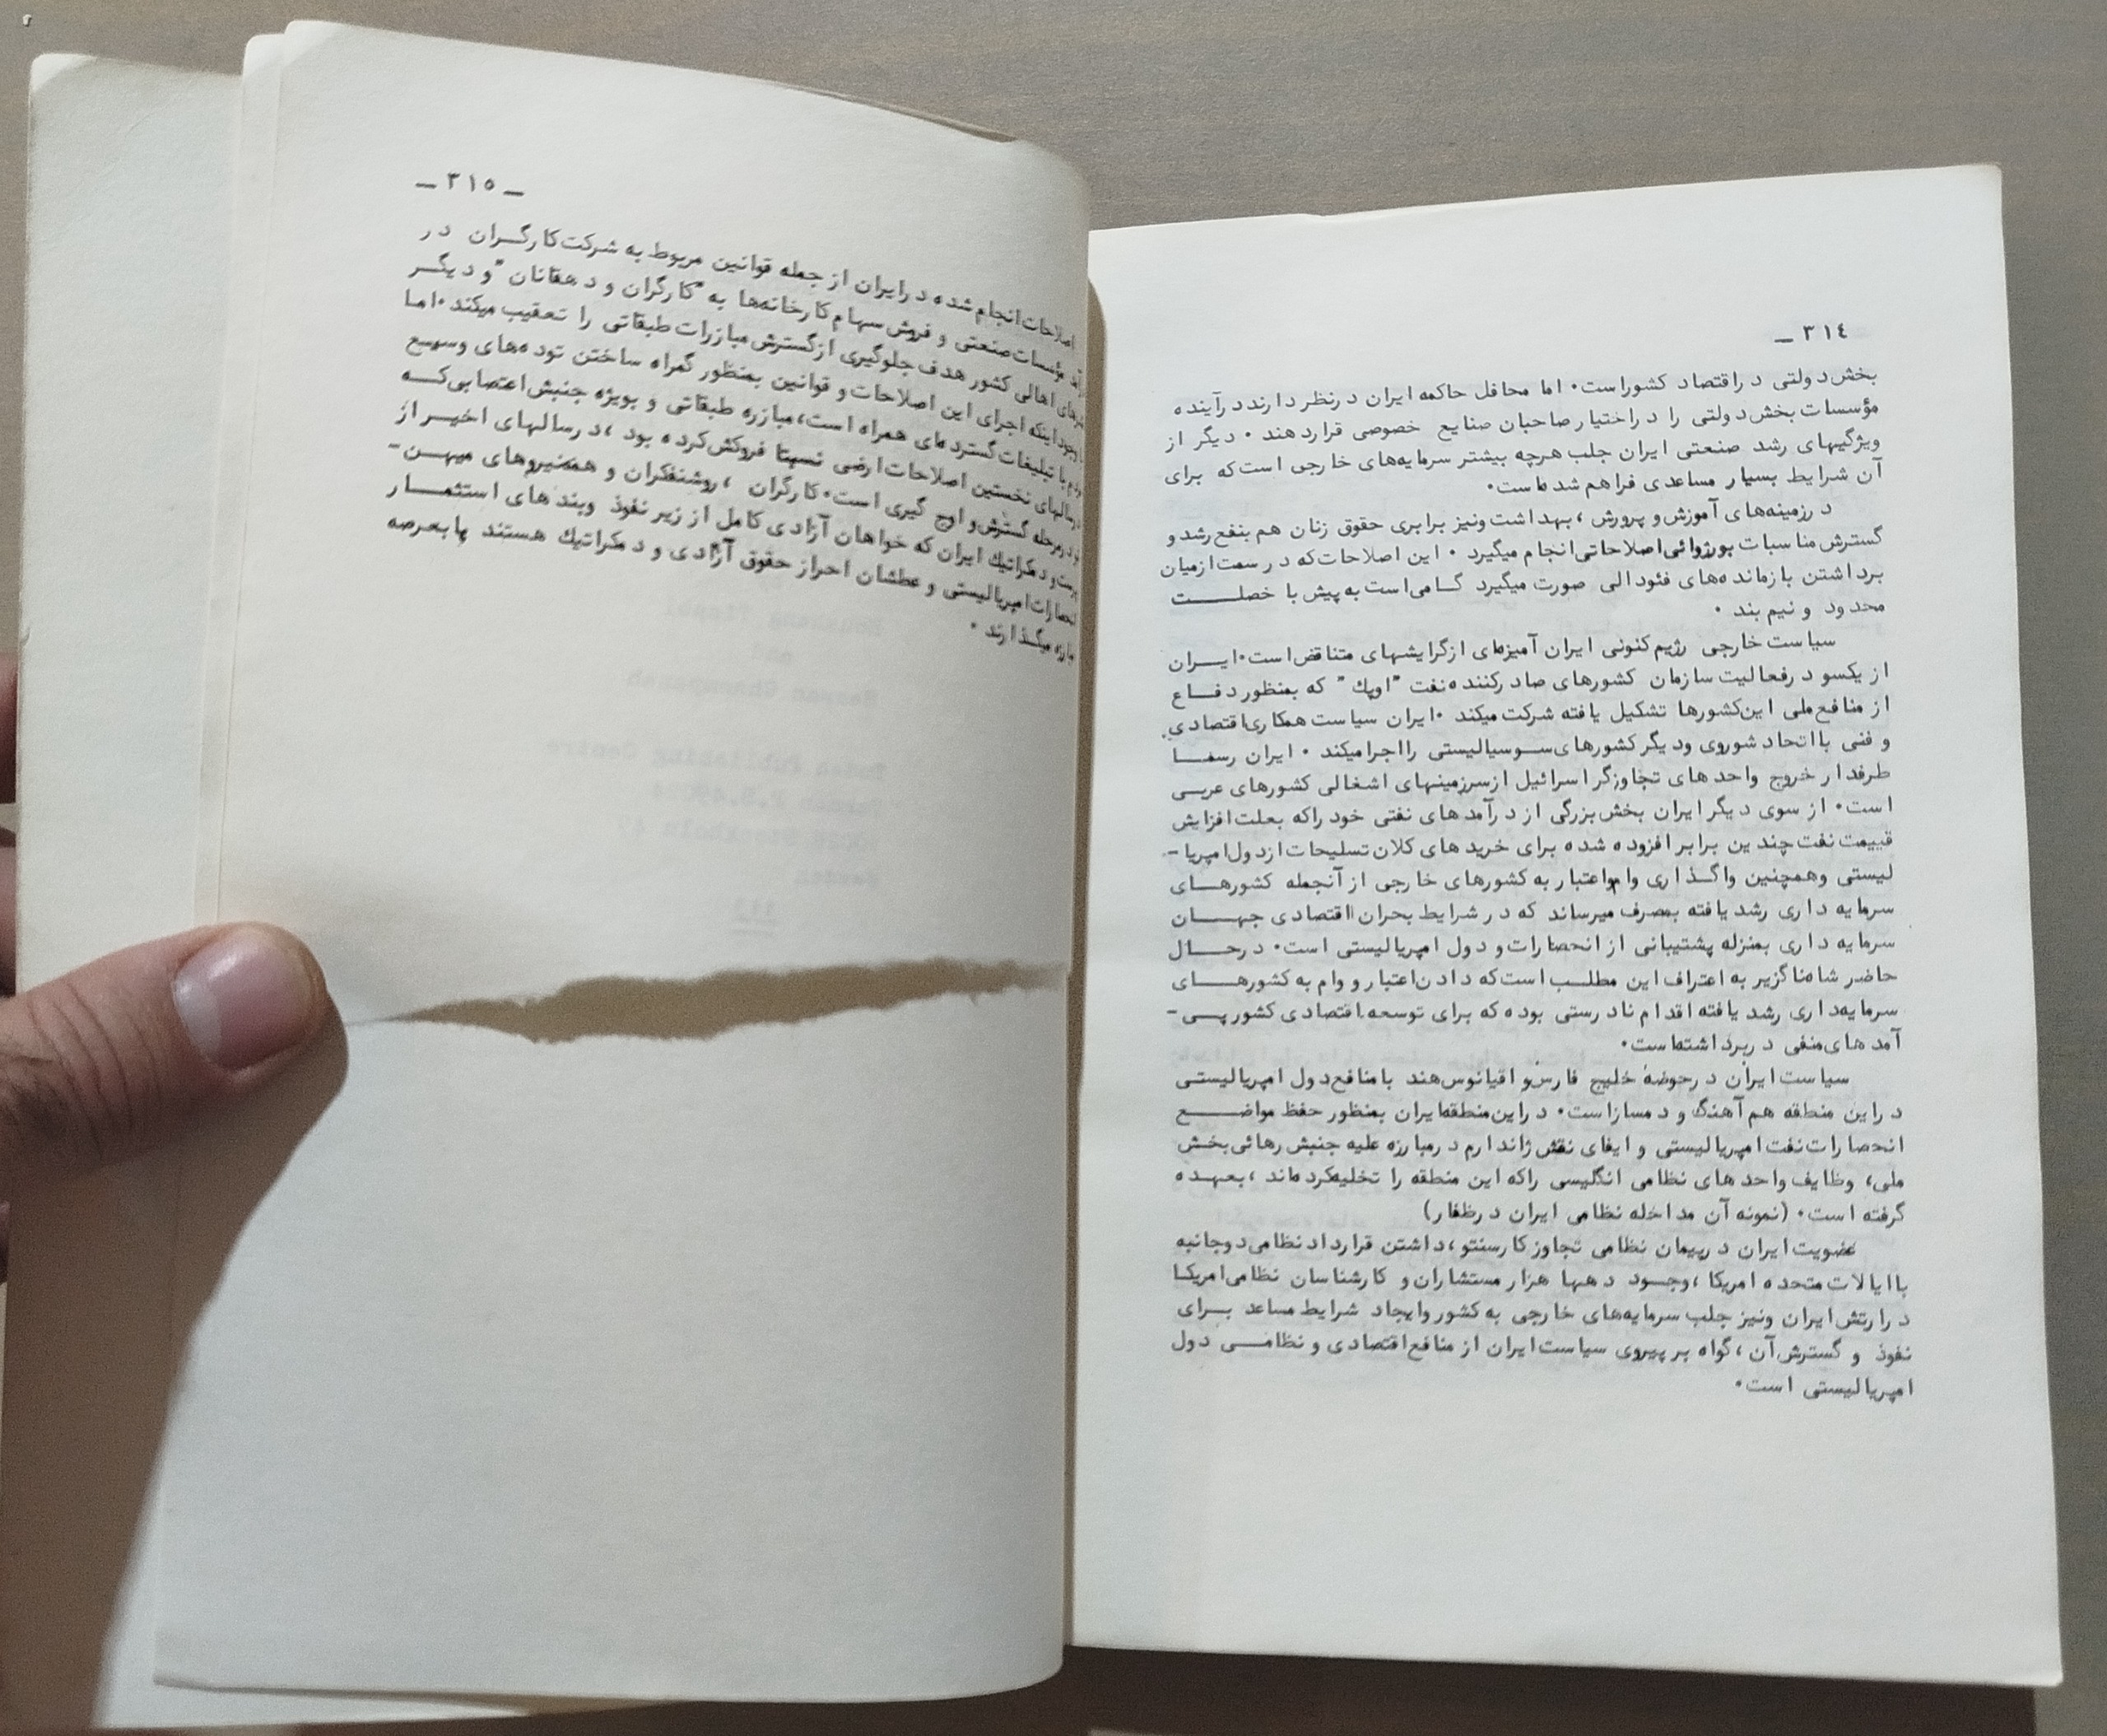 ٣١٤ــ
بخش دولتی در اقتصاد کشور است. اما محافل حاکمه ایران در نظر دارند در آینده
مؤسسات بخش دولتی را در اختیار صاحبان صنایع خصوصی قرار دهند. دیگر از
ویژگیهای رشد صنعتی ایران جلب هرچه بیشتر سرمایه‌های خارجی است که برای
آن شرایط بسیار مساعدی فراهم شده است.
در زمینه‌های آموزش و پرورش، بهداشت و نیز برابری حقوق زنان هم بنفع رشد و
گسترش مناسبات بورژوائی اصلاحاتی انجام میگیرد. این اصلاحات که در سمت از میان
برداشتن بازمانده‌های فئودالی صورت میگیرد گامی است به پیش با خصلت
محدود و نیم بند.
سیاست خارجی رژیم کنونی ایران آمیزه‌ای از گرایشهای متناقض است. ایران
از یکسو در فعالیت سازمان کشورهای صادر کننده نفت "اوپك" که بمنظور دفاع
از منافع ملی این کشورها تشکیل یافته شرکت میکند. ایران سیاست همکاری اقتصادی
و فنی با اتحاد شوروی و دیگر کشورهای سوسیالیستی را اجرا میکند. ایران رسما
طرفدار خروج واحدهای تجاوزگر اسرائیل از سرزمینهای اشغالی کشورهای عربی
است. از سوی دیگر ایران بخش بزرگی از درآمدهای نفتی خود را که بعلت افزایش
قییمت نفت چندین برابر افزوده شده برای خریدهای کلان تسلیحات از دول امپریا-
لیستی و همچنین واگذاری وام و اعتبار به کشورهای خارجی از آنجمله کشورهای
سرمایه داری رشد یافته بمصرف میرساند که در شرایط بحران اقتصادی جهان
سرمایه داری بمنزله پشتیبانی از انحصارات و دول امپریالیستی است. در حال
حاضر شاه ناگزیر به اعتراف این مطلب است که دادن اعتبار و وام به کشورهای
سرمایه‌داری رشد یافته اقدام نادرستی بوده که برای توسعه اقتصادی کشور پی-
آمدهای منفی در برداشته است.
سیاست ایران در حوضه خلیج فارس و اقیانوس هند با منافع دول امپریالیستی
در این منطقه هم آهنگ و دمساز است. در این منطقه ایران بمنظور حفظ مواضع
انحصارات نفت امپریالیستی و ایفای نقش ژاندارم در مبارزه علیه جنبش رهائی بخش
ملی، وظایف واحدهای نظامی انگلیسی را که این منطقه را تخلیه کرده‌اند، بعهده
گرفته است. (نمونه آن مداخله نظامی ایران در ظفار)
عضویت ایران در پیمان نظامی تجاوز کار سنتو، داشتن قرارداد نظامی دو جانبه
با ایالات متحده امریکا، وجود دهها هزار مستشاران و کارشناسان نظامی امریکا
در ارتش ایران و نیز جلب سرمایه‌های خارجی به کشور و ایجاد شرایط مساعد برای
نفوذ و گسترش آن، گواه بر پیروی سیاست ایران از منافع اقتصادی و نظامی دول
امپریالیستی است.
ــ ٣١٥ ــ
اصلاحات انجام شده در ایران از جمله قوانین مربوط به شرکت کارگران در
مؤسسات صنعتی و فروش سهام کارخانه‌ها به "کارگران و دهقانان" و دیگر
اهالی کشور هدف جلوگیری از گسترش مبارزات طبقاتی را تعقیب میکند. اما
اینکه اجرای این اصلاحات و قوانین بمنظور گمراه ساختن توده‌های وسیع
با تبلیغات گسترده‌ای همراه است، مبارزه طبقاتی و بویژه جنبش اعتصابی که
سالهای نخستین اصلاحات ارضی نسبتا فروکش کرده بود، در سالهای اخیر از
در مرحله گسترش و اوج گیری است. کارگران، روشنفکران و همه نیروهای میهن-
دمکراتیك ایران که خواهان آزادی کامل از زیر نفوذ و بندهای استثمار
انحصارات امپریالیستی و عطشان احراز حقوق آزادی و دمکراتیك هستند پا بعرصه
مبارزه میگذارند.